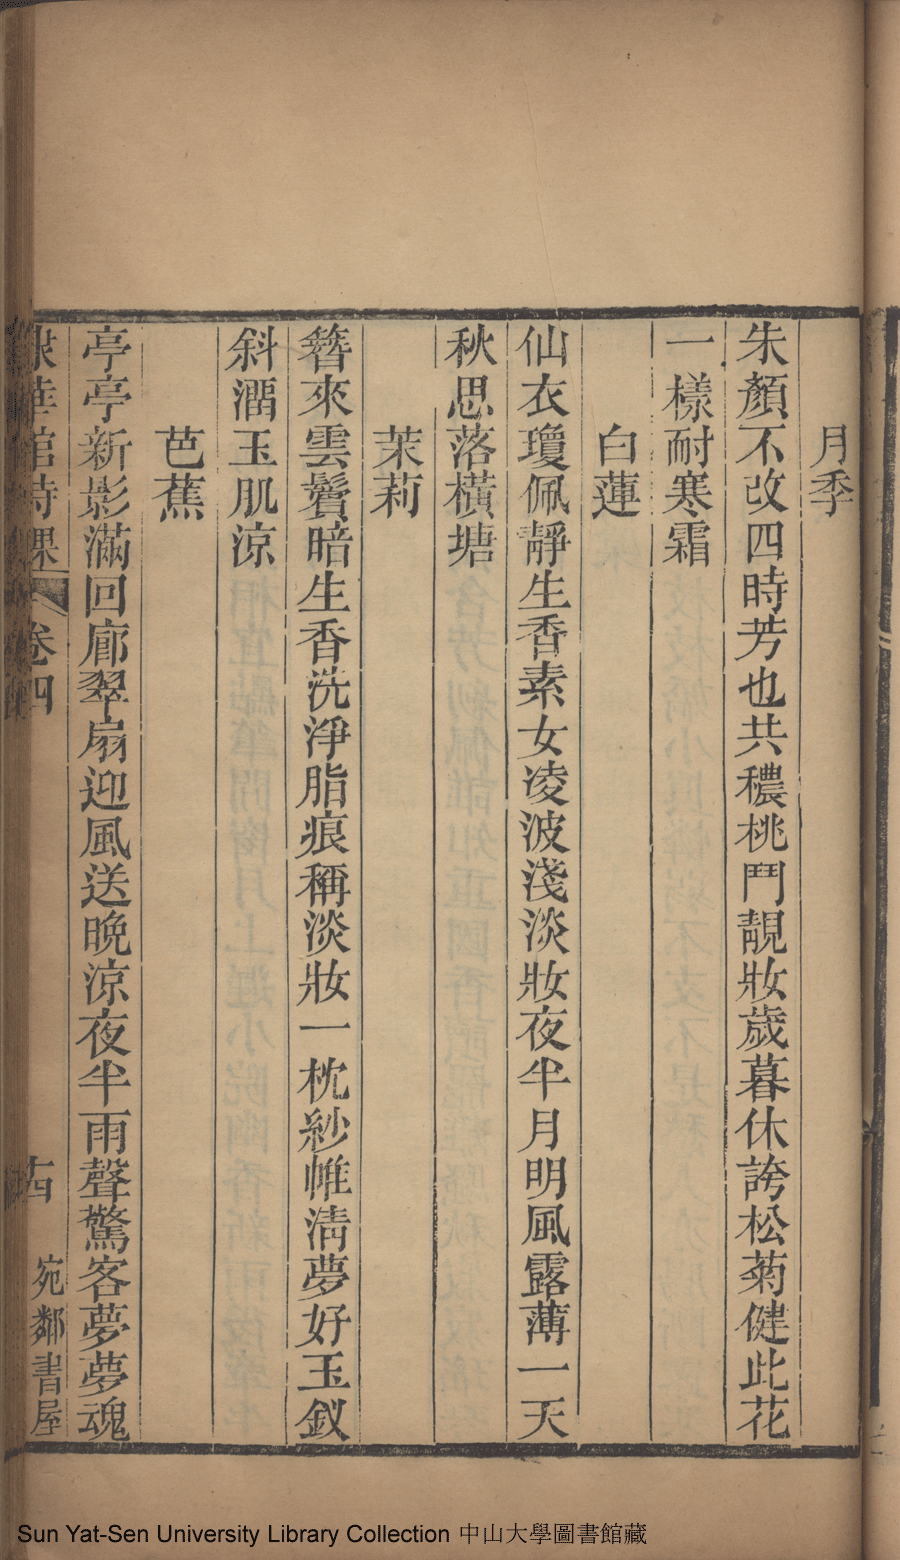 月季
朱顏不改四時芳也共穠桃鬥靚妝歲暮休誇松菊健此花
一樣耐寒霜
白蓮
仙衣瓊佩靜生香素女凌波淺淡妝夜半月明風露薄一天
秋思落橫塘
茉莉
簪來雲鬢暗生香洗淨脂痕稱淡妝一枕紗帷清夢好玉釵
斜潤玉肌涼
芭蕉
亭亭新影滿回廊翠扇迎風送晚涼夜半雨聲驚客夢夢魂
館詩課 卷四 宛鄰書屋
Sun Yat-Sen University Library Collection 中山大學圖書館藏